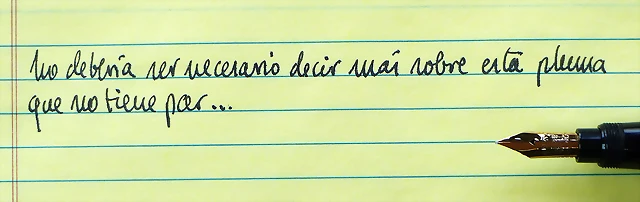 No debería ser necesario decir más sobre esta pluma
que no tiene par...